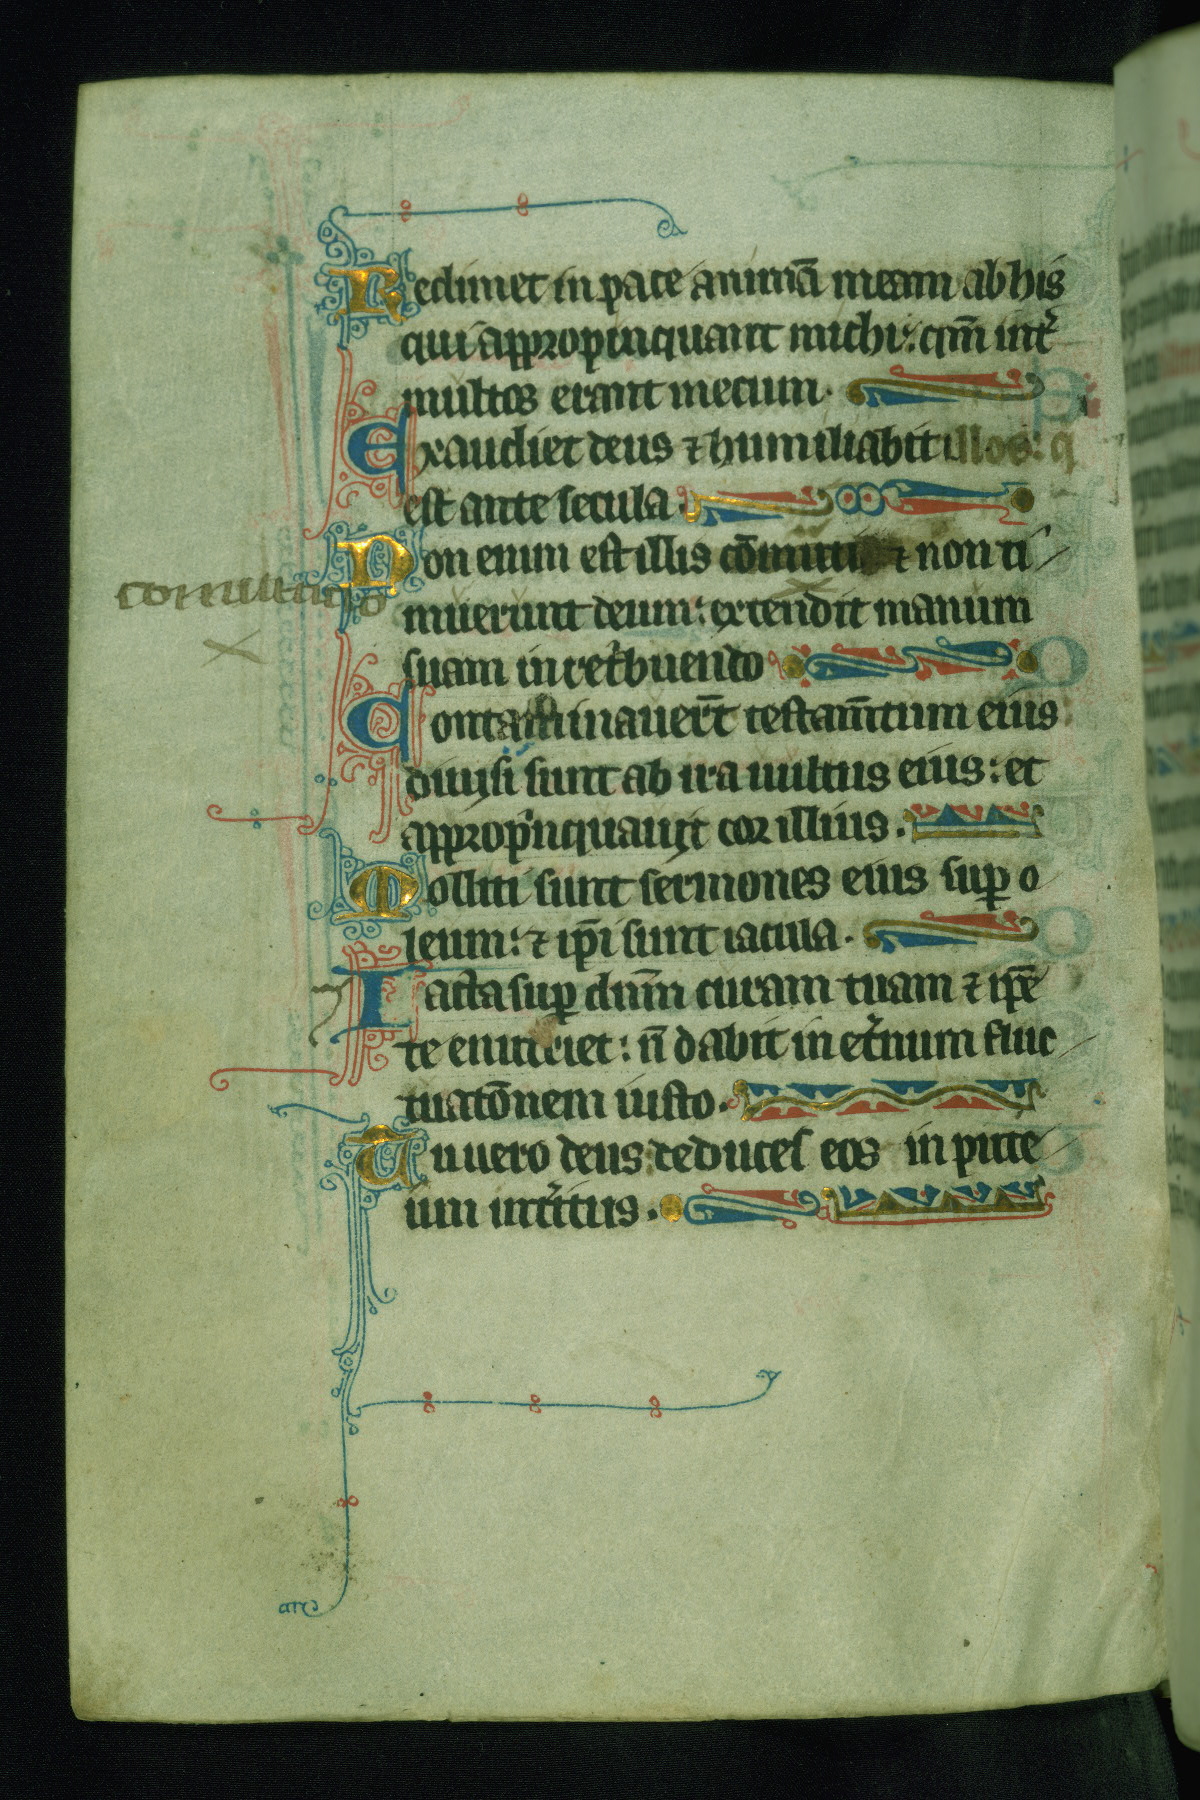 Redimet in pace animā meam ab his
qui appropinquant michi: qm̄ int̉
multos erant mecum.
Exaudiet deus ⁊ humiliabit illos: q
est ante secula.
Non enim est illis cōmuta ⁊ non ti
comutatio
muerunt deum: extendit manum
suam in ret̉buendo
Contaminauer̄t testam̄tum eius
diuisi sunt ab ira uultus eius: et
appropīnquauit cor illius.
Molliti sunt sermones eius suꝑ o
leum: ⁊ ip̄i sunt iacula.
Iacta suꝑ dnm̄ curam tuam ⁊ ip̄e
te enutriet: n̄ dabit in et̉num fluc
tuatōnem iusto.
Tu uero deus deduces eos in pute
um int̉itus.